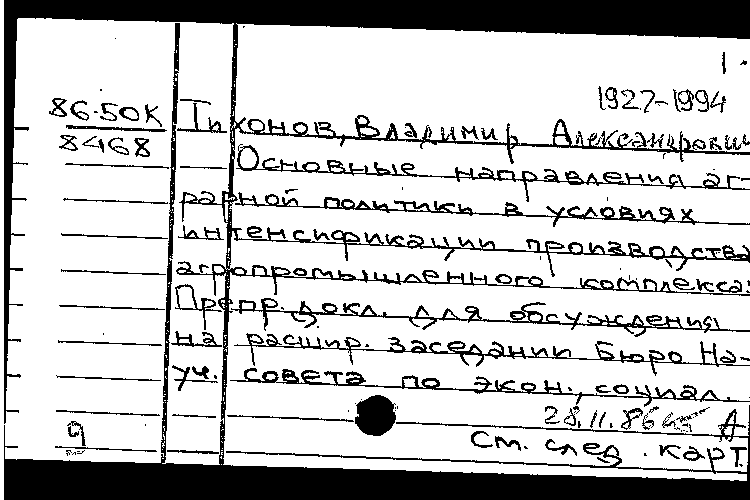 1.
1927-1994
86.50К Тихонов, Владимир Александрович
8468
Основные направления аг-
рарной политики в условиях
интенсификации производства
агропромышленного комплекса:
Препр. докл. для обсуждения
на расшир. заседании Бюро На-
уч. совета по экон., социал.
28.11.86
см. след. карт.
9